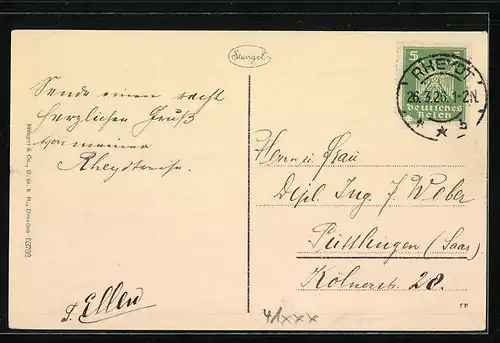 Stengel
5
RHEYDT
26.3.26
2N.
Deutsches
Reich
* * b
Sende einen recht
herzlichen Gruß
von meiner
Rheydtreise.
Ellen
Herrn u. Frau
Dipl. Ing. J. Weber
Püttlingen (Saar)
Kölnerstr. 28.
Stengel & Co., G.m.b.H., Dresden
41xxx